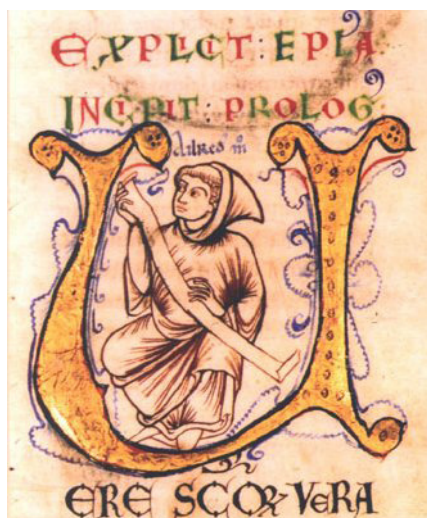 EXPLICIT : EPLA
INCIPIT : PROLOG
Ailred
U
ERE SCOꝜ VERA